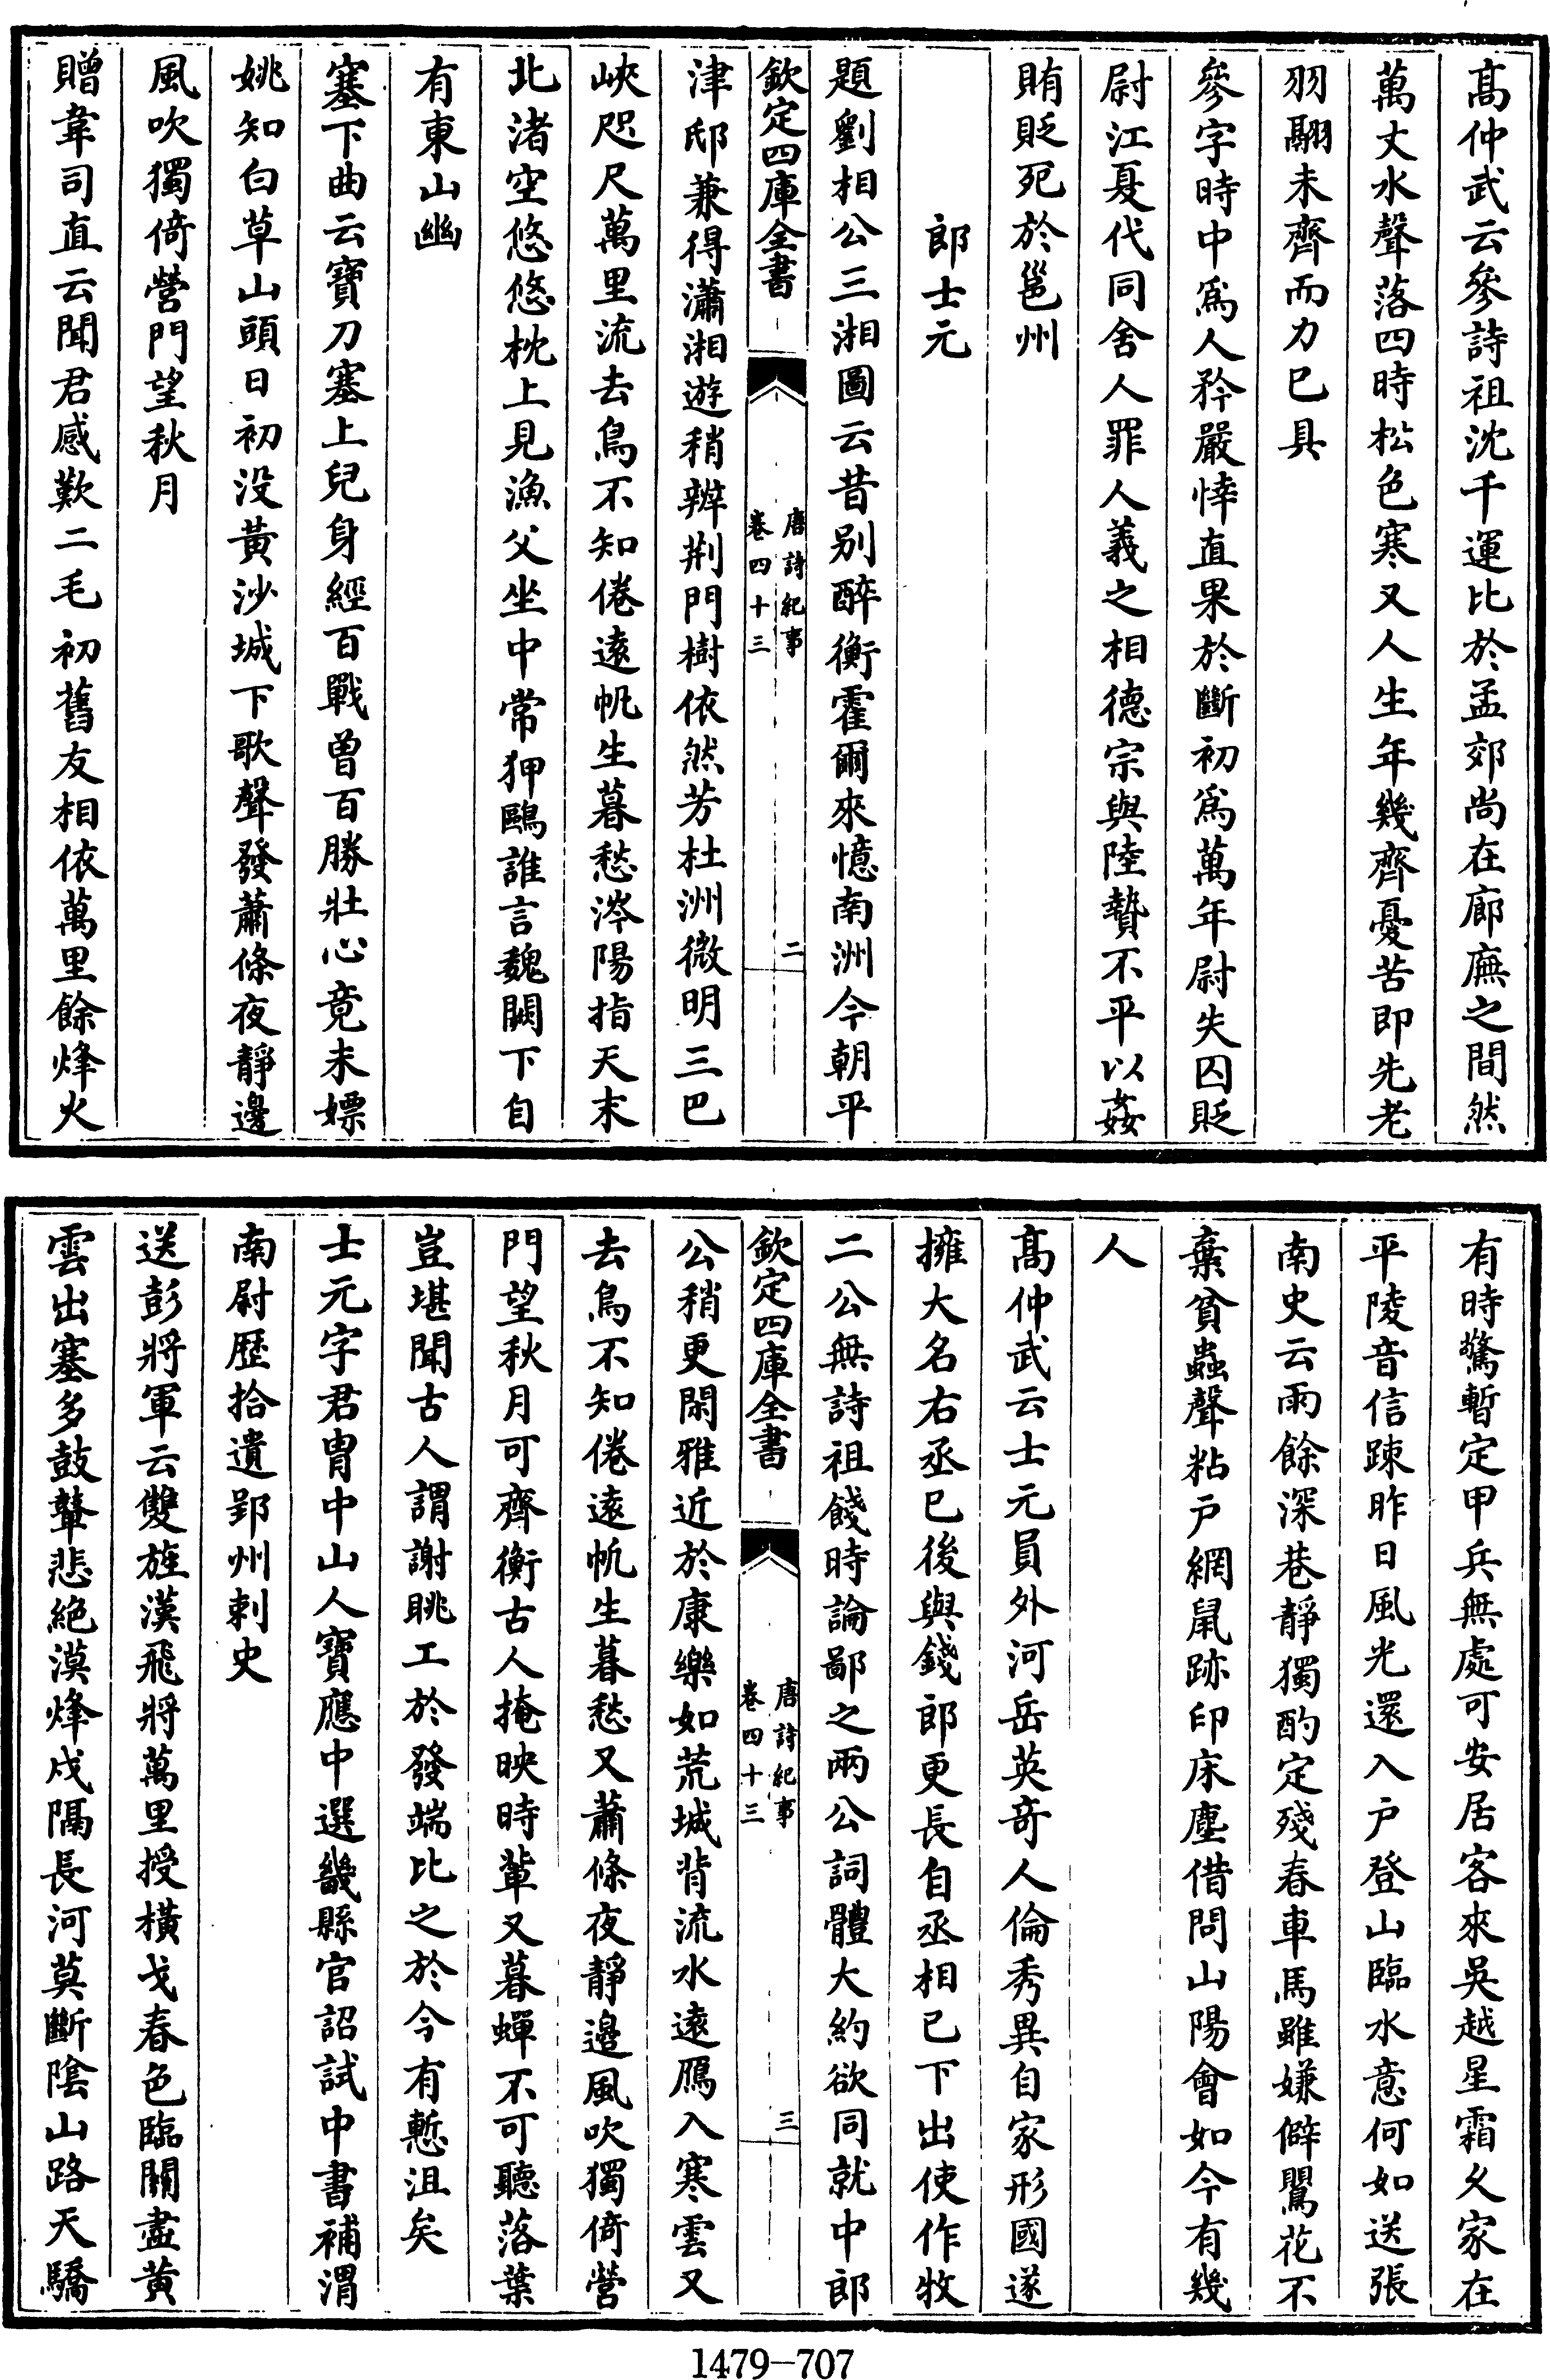 髙仲武云參詩祖沈千運比於孟郊尚在廊廡之間然
萬丈水聲落四時松色寒又人生年幾齊憂苦即先老
羽翮未齊而力已具
參字時中爲人矜嚴悻直果於斷初爲萬年尉失囚貶
尉江夏代同舍人罪人義之相德宗與陸贄不平以姦
賄貶死於邕州
郎士元
題劉相公三湘圖云昔别醉衡霍爾來憶南洲今朝平
欽定四庫全書
唐詩紀事
卷四十三
二
津邸兼得瀟湘遊稍辨荆門樹依然芳杜洲微明三巴
峽咫尺萬里流去鳥不知倦遠帆生暮愁涔陽指天末
北渚空悠悠枕上見漁父坐中常狎鷗誰言魏闕下自
有東山幽
塞下曲云寶刀塞上兒身經百戰曾百勝壯心竟未嫖
姚知白草山頭日初没黄沙城下歌聲發蕭條夜靜邊
風吹獨倚營門望秋月
贈韋司直云聞君感歎二毛初舊友相依萬里餘烽火
有時驚暫定甲兵無處可安居客來吳越星霜久家在
平陵音信踈昨日風光還入户登山臨水意何如送張
南史云雨餘深巷靜獨酌定殘春車馬雖嫌僻鸎花不
棄貧蟲聲粘户網鼠跡印床塵借問山陽會如今有幾
人
髙仲武云士元員外河岳英奇人倫秀異自家形國遂
擁大名右丞已後與錢郎更長自丞相已下出使作牧
二公無詩祖餞時論鄙之兩公詞體大約欲同就中郎
欽定四庫全書
唐詩紀事
卷四十三
三
公稍更閑雅近於康樂如荒城背流水遠鴈入寒雲又
去鳥不知倦遠帆生暮愁又蕭條夜靜邉風吹獨倚營
門望秋月可齊衡古人掩映時輩又暮蟬不可聽落葉
豈堪聞古人謂謝眺工於發端比之於今有慙沮矣
士元字君胄中山人寶應中選畿縣官詔試中書補渭
南尉歴拾遺郢州刺史
送彭將軍云雙旌漢飛將萬里授横戈春色臨關盡黄
雲出塞多鼓鼙悲絶漠烽戍隔長河莫斷陰山路天驕
1479-707